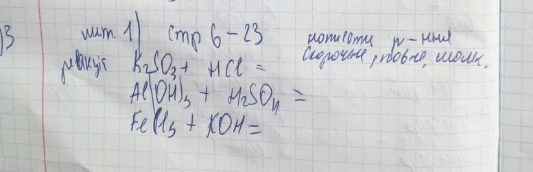 )3 пит. 1) стр 6-23 написати р-ння
реакцій скорочене, повне, молек.
K₂SO₃ + HCl =
Al(OH)₃ + H₂SO₄ =
FeCl₃ + KOH =